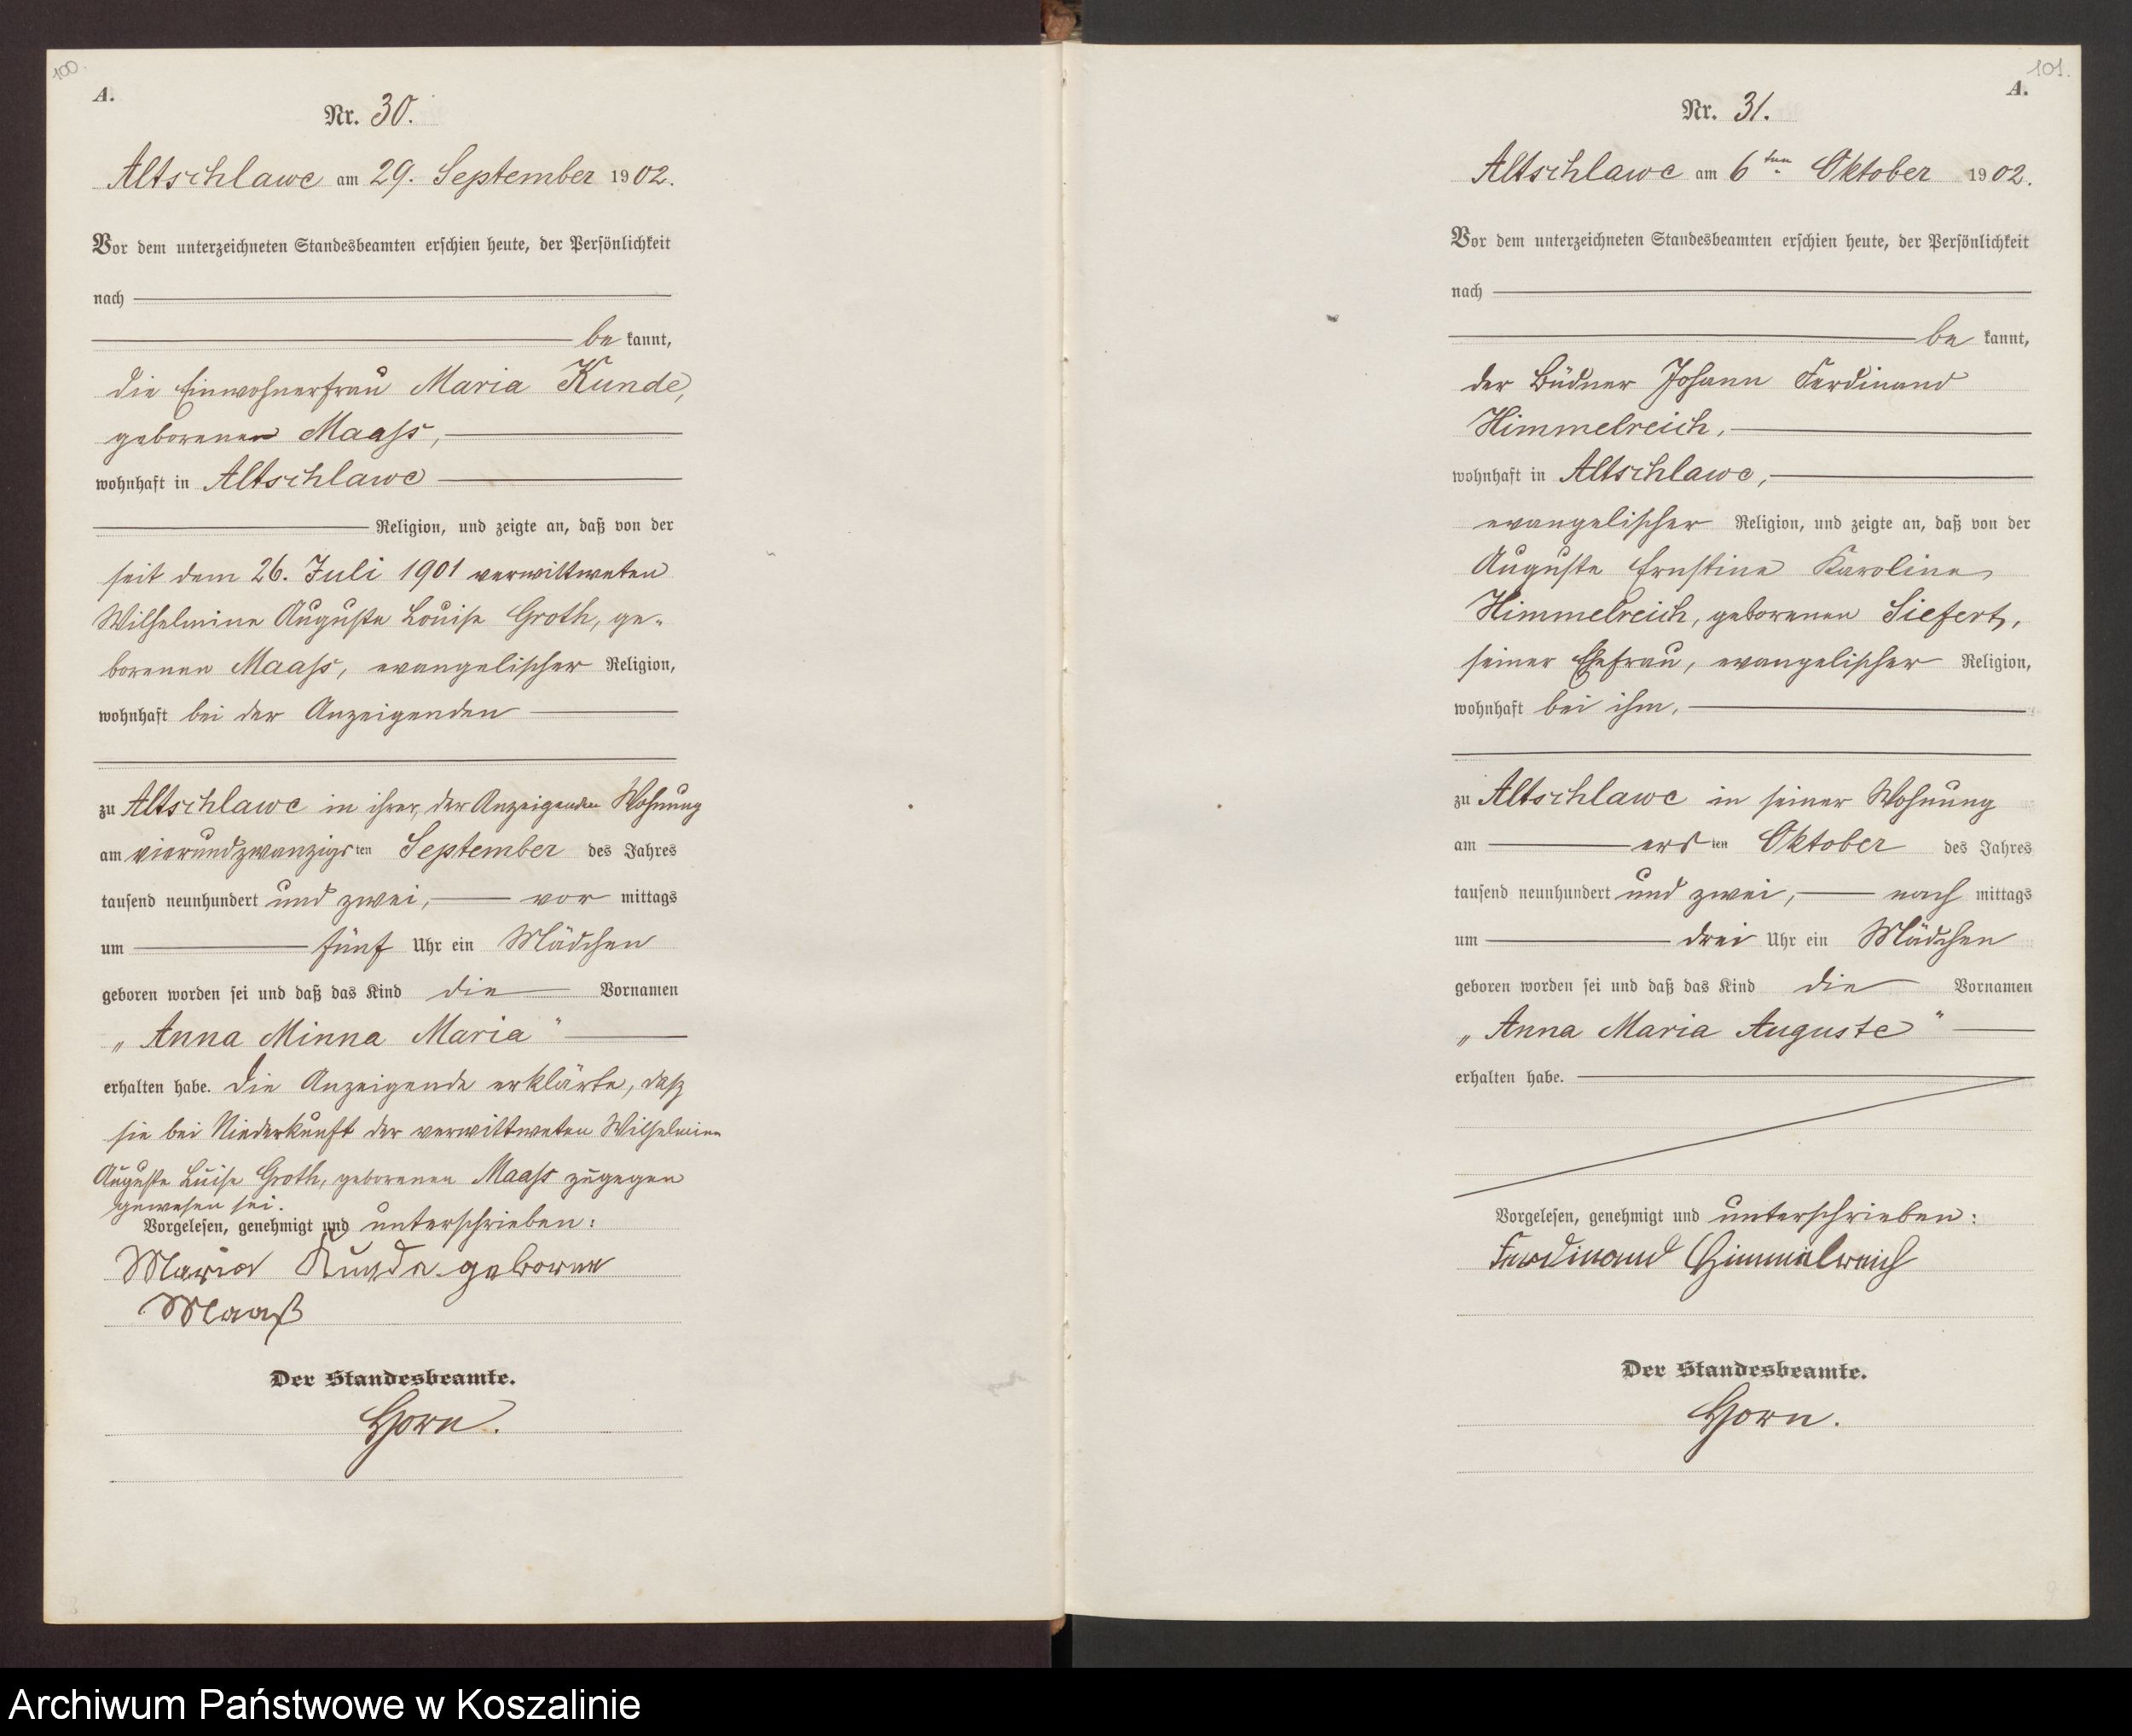 100.
A.
Nr. 30.
Altschlawe am 29. September 1902.
Vor dem unterzeichneten Standesbeamten erschien heute, der Persönlichkeit
nach
be kannt,
die Einwohnerfrau Maria Kunde,
geborenen Maass,
wohnhaft in Altschlawe
Religion, und zeigte an, daß von der
seit dem 26. Juli 1901 verwittweten
Wilhelmine Auguste Louise Groth, ge-
borenen Maass, evangelischer Religion,
wohnhaft bei der Anzeigenden
zu Altschlawe in ihrer, der Anzeigenden Wohnung
am vierundzwanzigsten September des Jahres
tausend neunhundert und zwei, vor mittags
um fünf Uhr ein Mädchen
geboren worden sei und daß das Kind die Vornamen
„Anna Minna Maria"
erhalten habe. Die Anzeigende erklärte, daß
sie bei Niederkunft der verwittweten Wilhelmine
Auguste Luise Groth, geborenen Maass zugegen
gewesen sei.
Vorgelesen, genehmigt und unterschrieben:
Maria Kunde geborne
Maaß
Der Standesbeamte.
Horn.
101.
A.
Nr. 31.
Altschlawe am 6ten Oktober 1902.
Vor dem unterzeichneten Standesbeamten erschien heute, der Persönlichkeit
nach
be kannt,
der Büdner Johann Ferdinand
Himmelreich,
wohnhaft in Altschlawe,
evangelischer Religion, und zeigte an, daß von der
Auguste Ernstine Karoline
Himmelreich, geborenen Siefert,
seiner Ehefrau, evangelischer Religion,
wohnhaft bei ihm,
zu Altschlawe in seiner Wohnung
am ersten Oktober des Jahres
tausend neunhundert und zwei, nach mittags
um drei Uhr ein Mädchen
geboren worden sei und daß das Kind die Vornamen
„Anna Maria Auguste"
erhalten habe.
Vorgelesen, genehmigt und unterschrieben:
Ferdinand Himmelreich
Der Standesbeamte.
Horn.
Archiwum Państwowe w Koszalinie